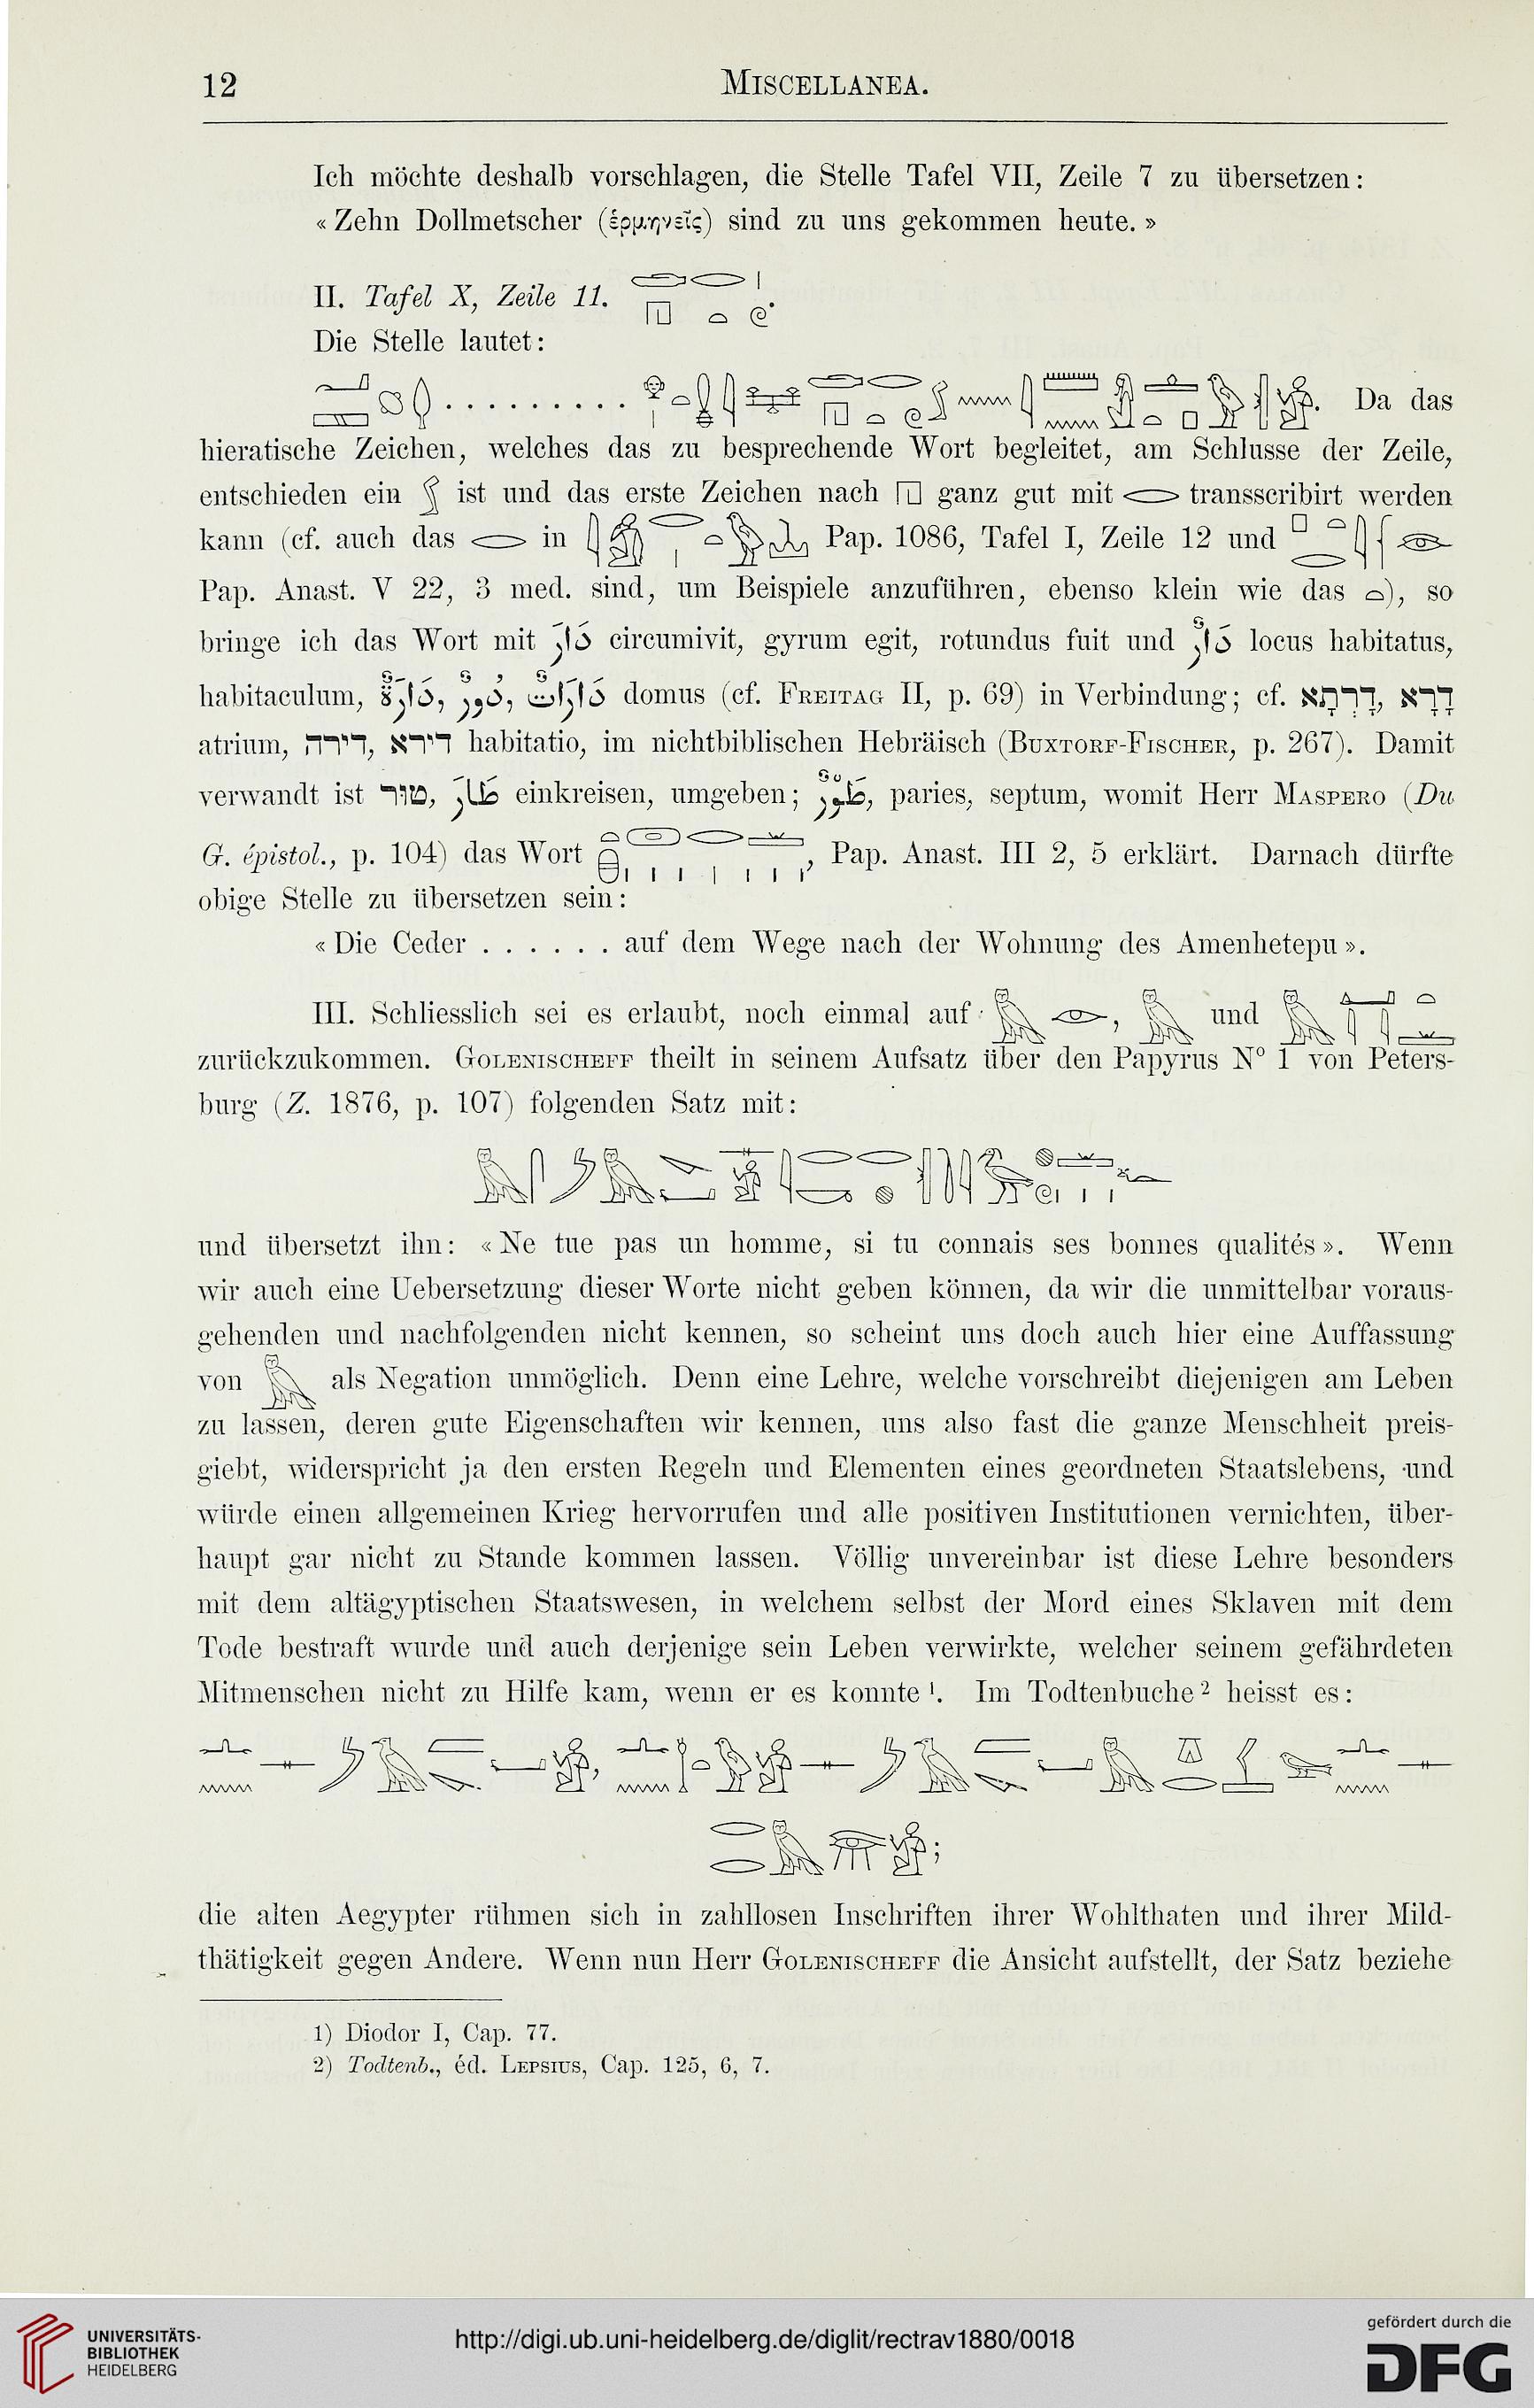 12
MISCELLANEA.
Ich möchte deshalb vorschlagen, die Stelle Tafel VII, Zeile 7 zu übersetzen:
« Zehn Dollmetscher (ἑρμηνεῖς) sind zu uns gekommen heute. »
II. Tafel X, Zeile 11.
Die Stelle lautet:
. . . . . . . . . . Da das
hieratische Zeichen, welches das zu besprechende Wort begleitet, am Schlusse der Zeile,
entschieden ein ist und das erste Zeichen nach ganz gut mit transscribirt werden
kann (cf. auch das in Pap. 1086, Tafel I, Zeile 12 und
Pap. Anast. V 22, 3 med. sind, um Beispiele anzuführen, ebenso klein wie das ), so
bringe ich das Wort mit دَارَ circumivit, gyrum egit, rotundus fuit und دَارٌ locus habitatus,
habitaculum, دَارَةٌ, دُورٌ, دَارَاتٌ domus (cf. FREITAG II, p. 69) in Verbindung; cf. דָּרָא, דָּרְתָא
atrium, דירא, דירה habitatio, im nichtbiblischen Hebräisch (BUXTORF-FISCHER, p. 267). Damit
verwandt ist טור, طَارَ einkreisen, umgeben; طَوْرٌ, paries, septum, womit Herr MASPERO (Du
G. épistol., p. 104) das Wort , Pap. Anast. III 2, 5 erklärt. Darnach dürfte
obige Stelle zu übersetzen sein:
« Die Ceder . . . . . . auf dem Wege nach der Wohnung des Amenhetepu ».
III. Schliesslich sei es erlaubt, noch einmal auf , und
zurückzukommen. GOLENISCHEFF theilt in seinem Aufsatz über den Papyrus N° 1 von Peters-
burg (Z. 1876, p. 107) folgenden Satz mit:
und übersetzt ihn: « Ne tue pas un homme, si tu connais ses bonnes qualités ». Wenn
wir auch eine Uebersetzung dieser Worte nicht geben können, da wir die unmittelbar voraus-
gehenden und nachfolgenden nicht kennen, so scheint uns doch auch hier eine Auffassung
von als Negation unmöglich. Denn eine Lehre, welche vorschreibt diejenigen am Leben
zu lassen, deren gute Eigenschaften wir kennen, uns also fast die ganze Menschheit preis-
giebt, widerspricht ja den ersten Regeln und Elementen eines geordneten Staatslebens, und
würde einen allgemeinen Krieg hervorrufen und alle positiven Institutionen vernichten, über-
haupt gar nicht zu Stande kommen lassen. Völlig unvereinbar ist diese Lehre besonders
mit dem altägyptischen Staatswesen, in welchem selbst der Mord eines Sklaven mit dem
Tode bestraft wurde und auch derjenige sein Leben verwirkte, welcher seinem gefährdeten
Mitmenschen nicht zu Hilfe kam, wenn er es konnte ¹. Im Todtenbuche ² heisst es:
die alten Aegypter rühmen sich in zahllosen Inschriften ihrer Wohlthaten und ihrer Mild-
thätigkeit gegen Andere. Wenn nun Herr GOLENISCHEFF die Ansicht aufstellt, der Satz beziehe
1) Diodor I, Cap. 77.
2) Todtenb., éd. LEPSIUS, Cap. 125, 6, 7.
UNIVERSITÄTS-
BIBLIOTHEK
HEIDELBERG
http://digi.ub.uni-heidelberg.de/diglit/rectrav1880/0018
gefördert durch die
DFG